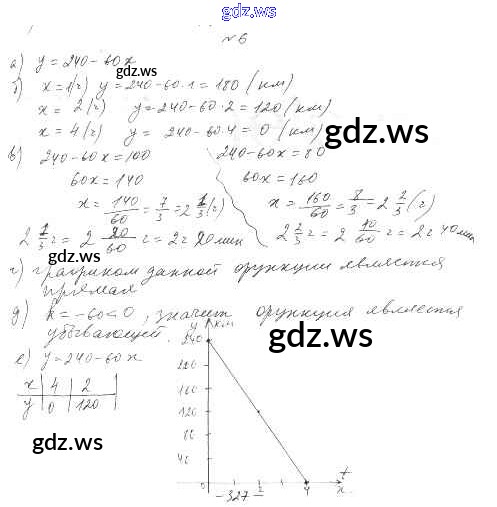 gdz.ws
№6
а) y = 240-60x
gdz.ws
б) x=1(ч) y=240-60·1=180 (км)
x= 2(ч) y=240-60·2=120 (км)
x=4(ч) y= 240-60·4=0 (км)
gdz.ws
в) 240-60x=100 240-60x=80
60x=140 60x=160
x= 140/60 = 7/3 = 2 1/3 (ч) x= 160/60 = 8/3 = 2 2/3 (ч)
2 1/3 ч = 2 20/60 ч = 2ч 20мин 2 2/3 ч = 2 40/60 ч = 2ч 40мин
gdz.ws
г) графиком данной функции является
прямая
д) k=-60<0, значит функция является
убывающей.
gdz.ws
е) y=240-60x
x 4 2
y 0 120
gdz.ws
y км
240
200
120
80
40
0 2 4 t
x
-327-
gdz.ws